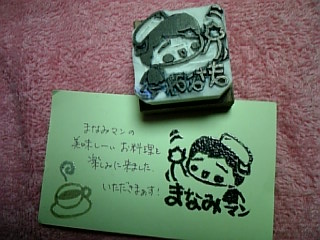 まなみマンの
美味しーい お料理を
楽しみに来ました
いただきまぁす!
まなみマン